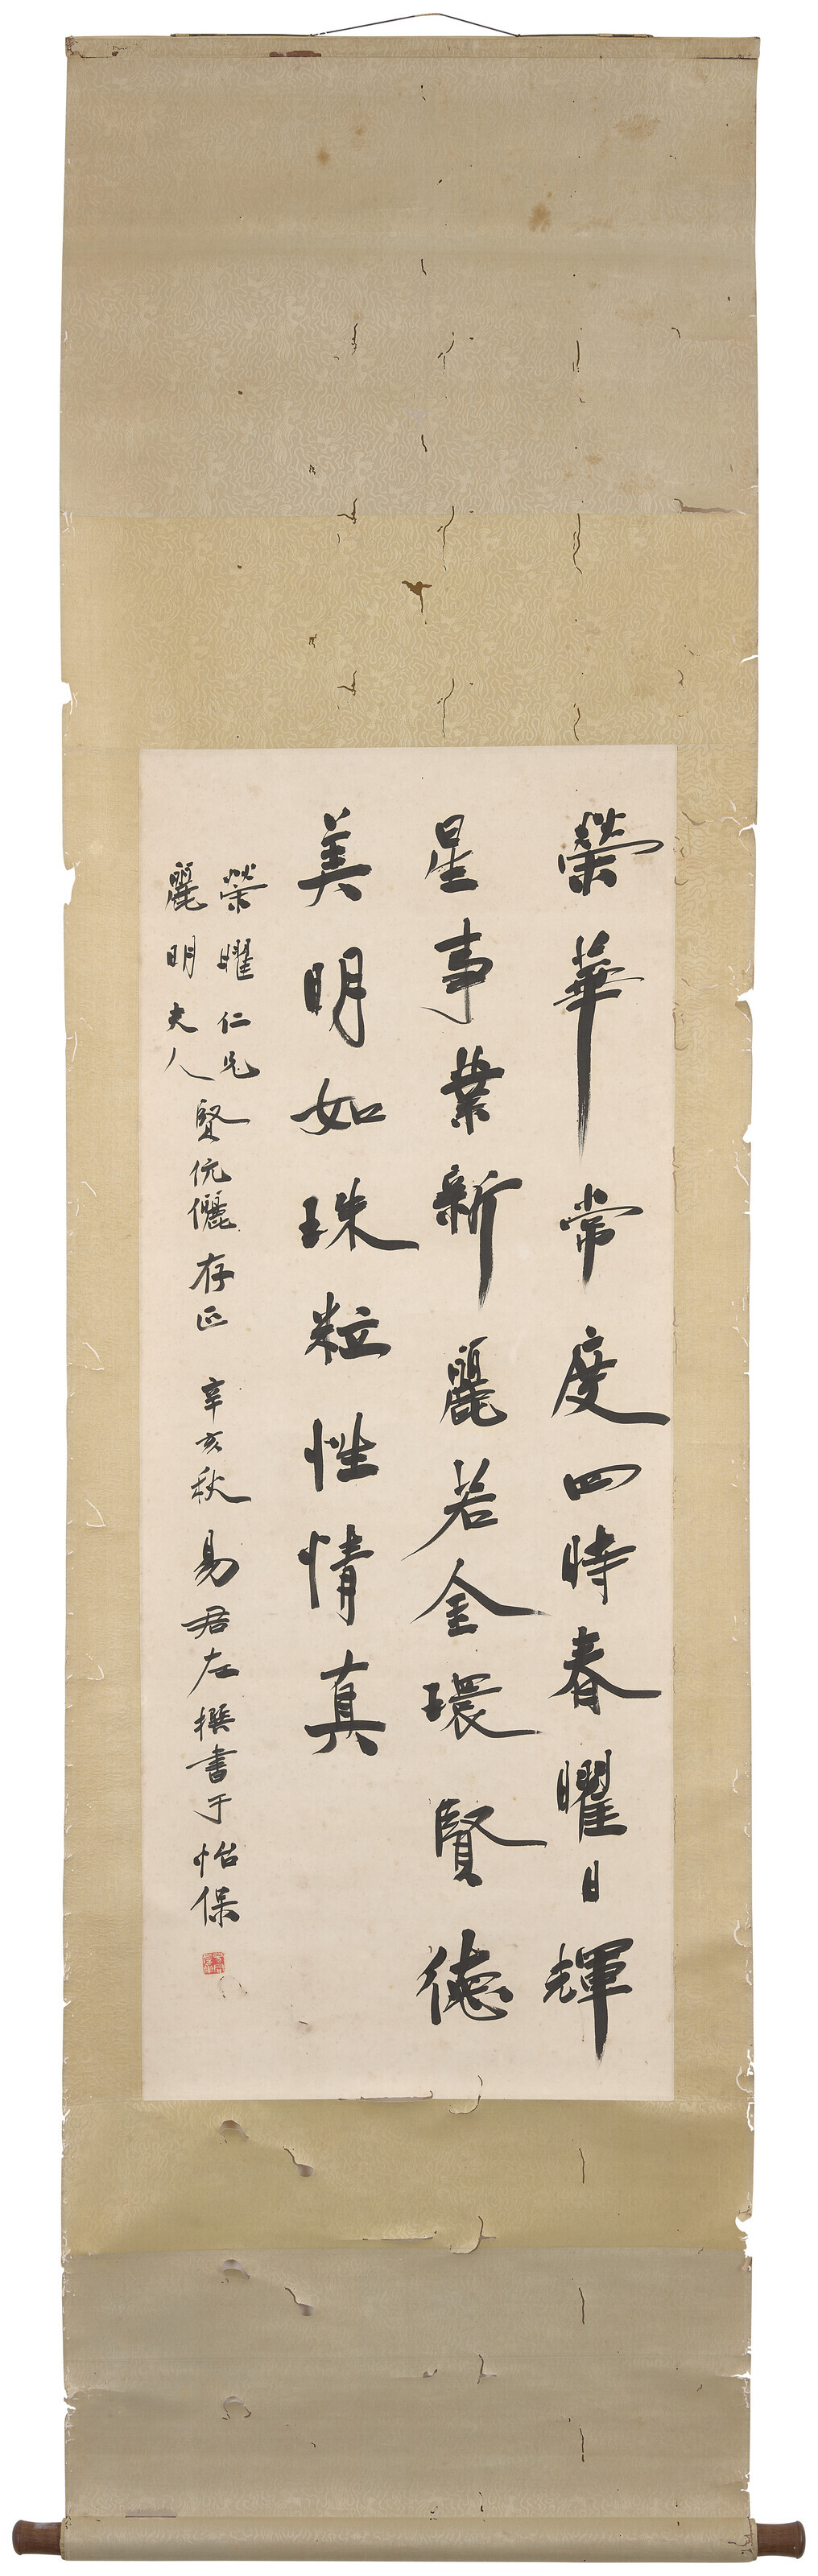 榮華常度四時春曜日輝
星事業新麗若金環賢德
美明如珠粒性情真
榮曜仁兄
麗明夫人
賢伉儷存正 辛亥秋 易君左撰書于怡保